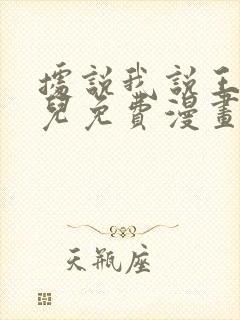 據說我說王
兒免費漫畫
天瓶座